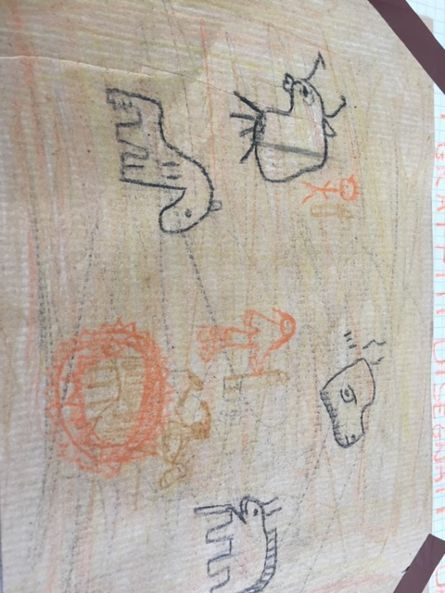 GRAFFITI DISEGNATI